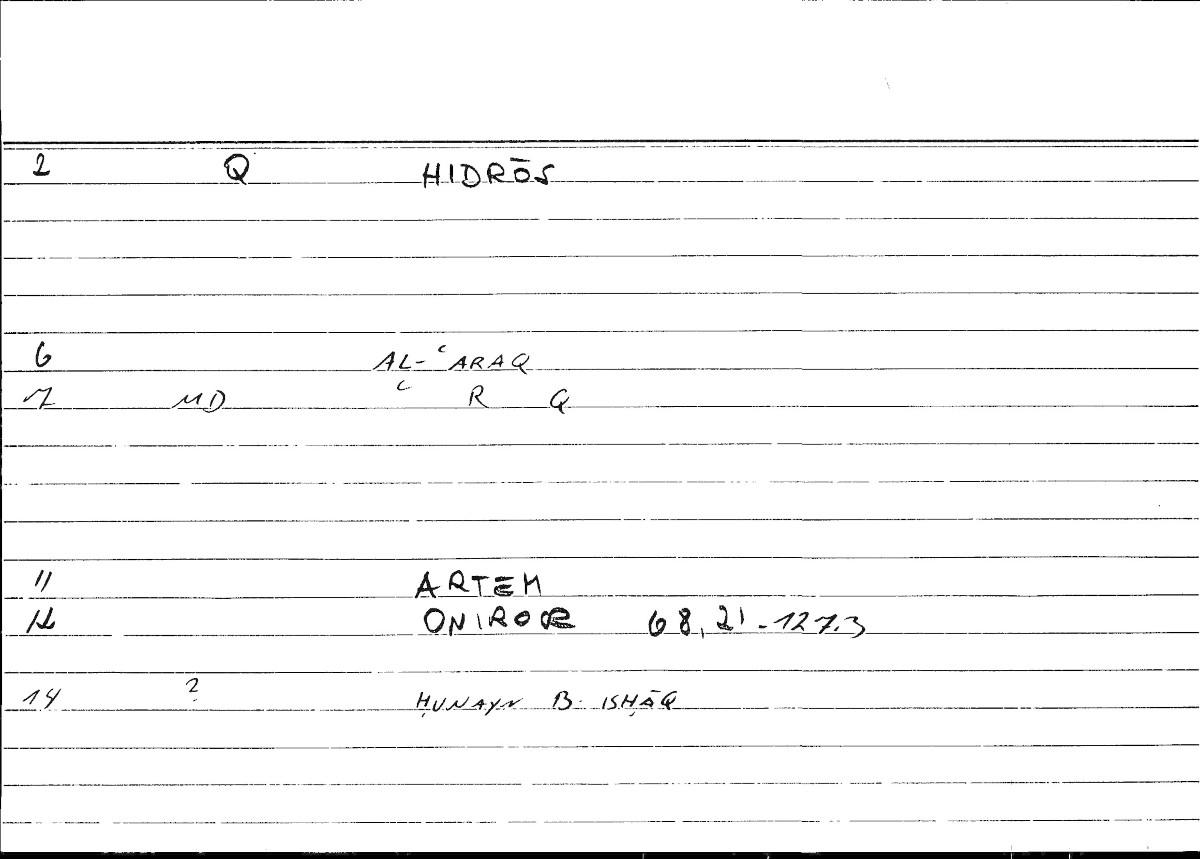 2 Q HIDRŌS
6 AL-ʿARAQ
7 MD ʿ R Q
11 ARTEM
12 ONIROCR 68,21-127.3
14 ? ḤUNAYN B. ISḤĀQ